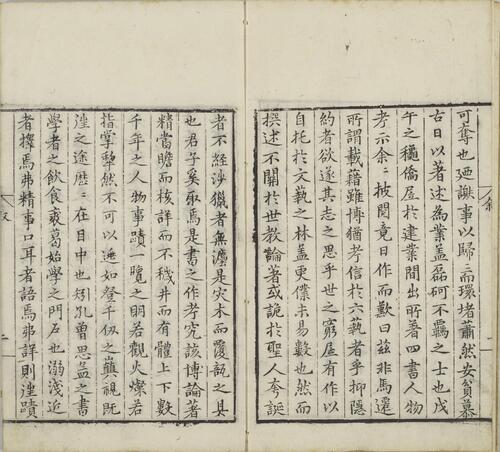 可奪也廼謝事以歸而環堵蕭然安貧慕
古日以著述為業蓋磊砢不羈之士也戊
午之穐僑居於建業間出所著四書人物
考示余〻披閱竟日作而歎曰茲非馬遷
所謂載籍雖博猶考信於六蓺者乎抑隱
約者欲遂其志之思乎世之窮居有作以
自托於文蓺之林蓋更僕未易數也然而
撰述不關於世教論著或詭於聖人夸誕
者不經涉獵者無是災木而覆瓿之具
也君子奚取焉是書之作考究該博論著
精當贍而核詳而不穢井而有體上下數
千年之人物事蹟一覽之明若觀火燦若
指掌犂然不可以如登千仞之巔視既
之途歷〻在目中也矧孔曾思孟之書
學者之飲食裘葛始學之門戶也溺淺近
者擇焉弗精事口耳者語焉弗詳則蹟